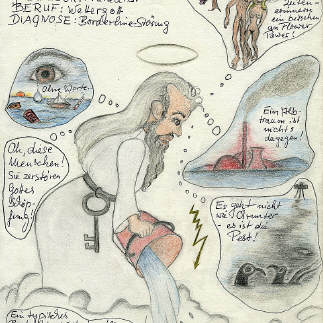 BERUF: Wettergott
DIAGNOSE: Borderline-Störung
Zeiten-
erinnern
ein bisschen
an Flower
Power!
Ohne Worte.
Ein Alb-
traum ist
nichts
dagegen!
Oh, diese
Menschen!
Sie zerstören
Gottes
Schöp-
fung!
Es geht nicht
drunter -
es ist die
Pest!
Ein typischer